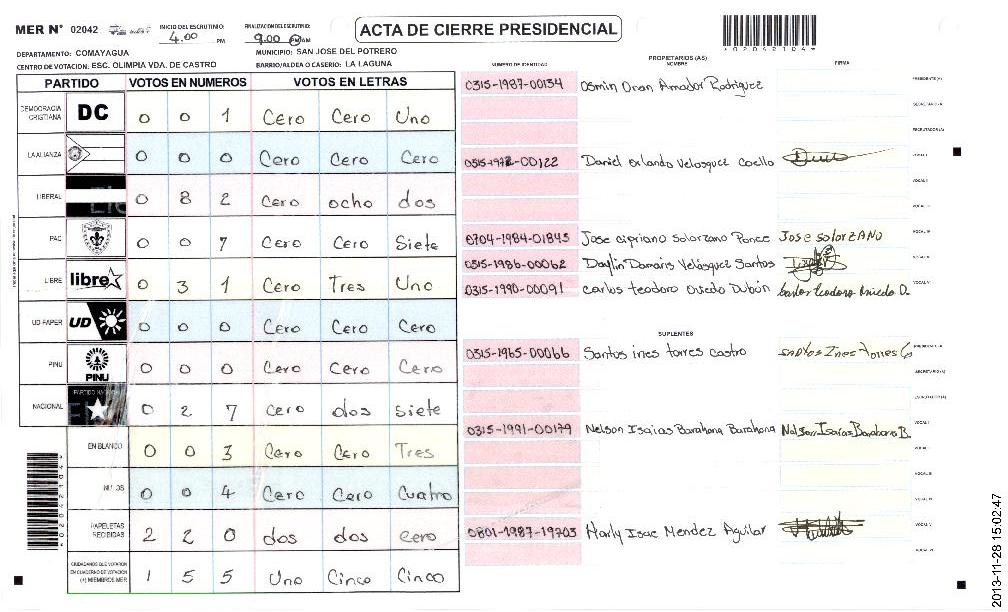 MER N° 02042 INICIO DEL ESCRUTINIO: 4.00 PM FINALIZACION DEL ESCRUTINIO: 9.00 PM AM ACTA DE CIERRE PRESIDENCIAL
*02042104*
DEPARTAMENTO: COMAYAGUA MUNICIPIO: SAN JOSE DEL POTRERO
CENTRO DE VOTACION: ESC. OLIMPIA VDA. DE CASTRO BARRIO/ALDEA O CASERIO: LA LAGUNA
PARTIDO VOTOS EN NUMEROS VOTOS EN LETRAS
DEMOCRACIA CRISTIANA DC 0 0 1 Cero Cero Uno
LA ALIANZA 0 0 0 Cero Cero Cero
LIBERAL 0 8 2 Cero ocho dos
PAC 0 0 7 Cero Cero Siete
LIBRE libre 0 3 1 Cero Tres Uno
UD-FAPER UD 0 0 0 Cero Cero Cero
PINU PINU 0 0 0 Cero Cero Cero
NACIONAL 0 2 7 Cero dos siete
EN BLANCO 0 0 3 Cero Cero Tres
NULOS 0 0 4 Cero Cero Cuatro
PAPELETAS RECIBIDAS 2 2 0 dos dos cero
CIUDADANOS QUE VOTARON EN CUADERNO DE VOTACION (+) MIEMBROS MER 1 5 5 Uno Cinco Cinco
NUMERO DE IDENTIDAD PROPIETARIOS (AS) NOMBRE FIRMA
0315-1987-00134 Osmin Oran Amador Rodriguez PRESIDENTE(A)
SECRETARIO/A
ESCRUTADOR(A)
0315-1972-00122 Daniel Orlando Velasquez Coello VOCAL I
VOCAL II
VOCAL III
0704-1984-01845 Jose cipriano Solorzano Ponce Jose solorzano VOCAL IV
0315-1986-00062 Daylin Damaris Velásquez Santos VOCAL V
0315-1990-00091 Carlos teodoro Oviedo Dubón Carlos teodoro Oviedo D. VOCAL VI
SUPLENTES
0315-1965-00066 Santos ines torres castro Santos Ines torres C PRESIDENTE/A
SECRETARIO(A)
ESCRUTADOR(A)
0315-1991-00179 Nelson Isaias Barahona Barahona Nelson Isaias Barahona B. VOCAL I
VOCAL II
VOCAL III
VOCAL IV
0801-1987-19703 Harly Isac Mendez Aguilar VOCAL V
VOCAL VI
*02042104*
2013-11-28 15:02:47